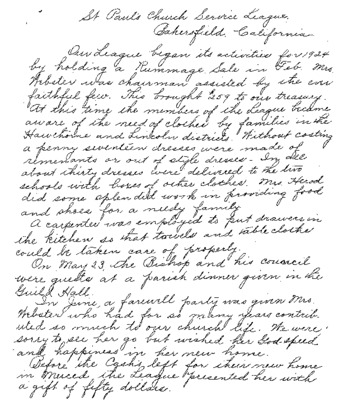 St Pauls Church Service League.
Bakersfield, California.
Our League began its activities for 1924
by holding a Rummage Sale in Feb. Mrs
Webster was chairman assisted by the
faithful few. This brought 259 to our treasury.
At this time the members of the League became
aware of the need of clothes by families in the
Hawthorne and Lincoln districts. Without costing
a penny seventeen dresses were made of
remenants or out of style dresses. In
about thirty dresses were delivered to the two
schools with boxes of other clothes. Mrs
did some splendid work in providing food
and shoes for a needy family.
A carpenter was employed to put drawers in
the kitchen so that towels and table cloths
could be taken care of properly.
On May 23, the Bishop and his council
were guests at a parish dinner given in the
Guild Hall.
In June, a farewell party was given Mrs.
Webster who had for so many years contrib
uted so much to our church life. We were
sorry to see her go but wished her God speed
and happiness in her new home.
Before the left for their new home
in Merced the League presented her with
a gift of fifty dollars.